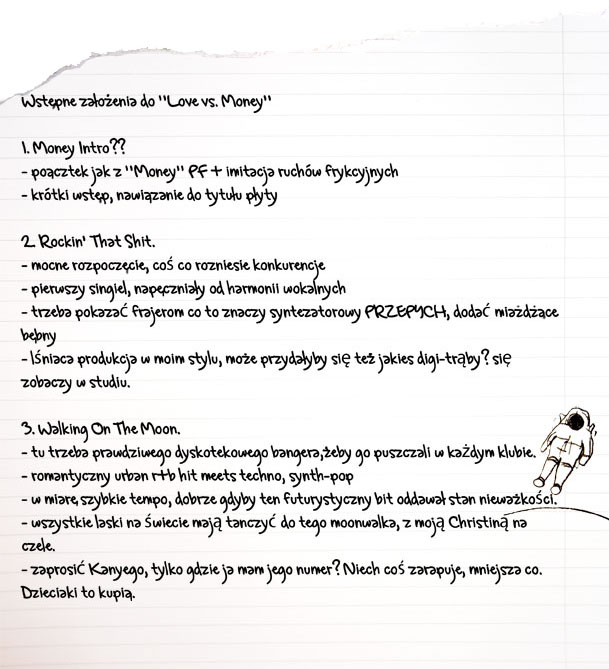 Wstępne założenia do "Love vs. Money"
1. Money Intro??
- poącztek jak z "Money" PF + imitacja ruchów frykcyjnych
- krótki wstęp, nawiązanie do tytułu płyty
2. Rockin' That Shit.
- mocne rozpoczęcie, coś co rozniesie konkurencje
- pierwszy singiel, napęczniały od harmonii wokalnych
- trzeba pokazać frajerom co to znaczy syntezatorowy PRZEPYCH, dodać miażdżące
bębny
- lśniaca produkcja w moim stylu, może przydałyby się też jakies digi-trąby? się
zobaczy w studiu.
3. Walking On The Moon.
- tu trzeba prawdziwego dyskotekowego bangera,żeby go puszczali w każdym klubie.
- romantyczny urban r+b hit meets techno, synth-pop
- w miarę szybkie tempo, dobrze gdyby ten futurystyczny bit oddawał stan nieważkości.
- wszystkie laski na świecie mają tanczyć do tego moonwalka, z moją Christiną na
czele.
- zaprosić Kanyego, tylko gdzie ja mam jego numer? Niech coś zarapuje, mniejsza co.
Dzieciaki to kupią.